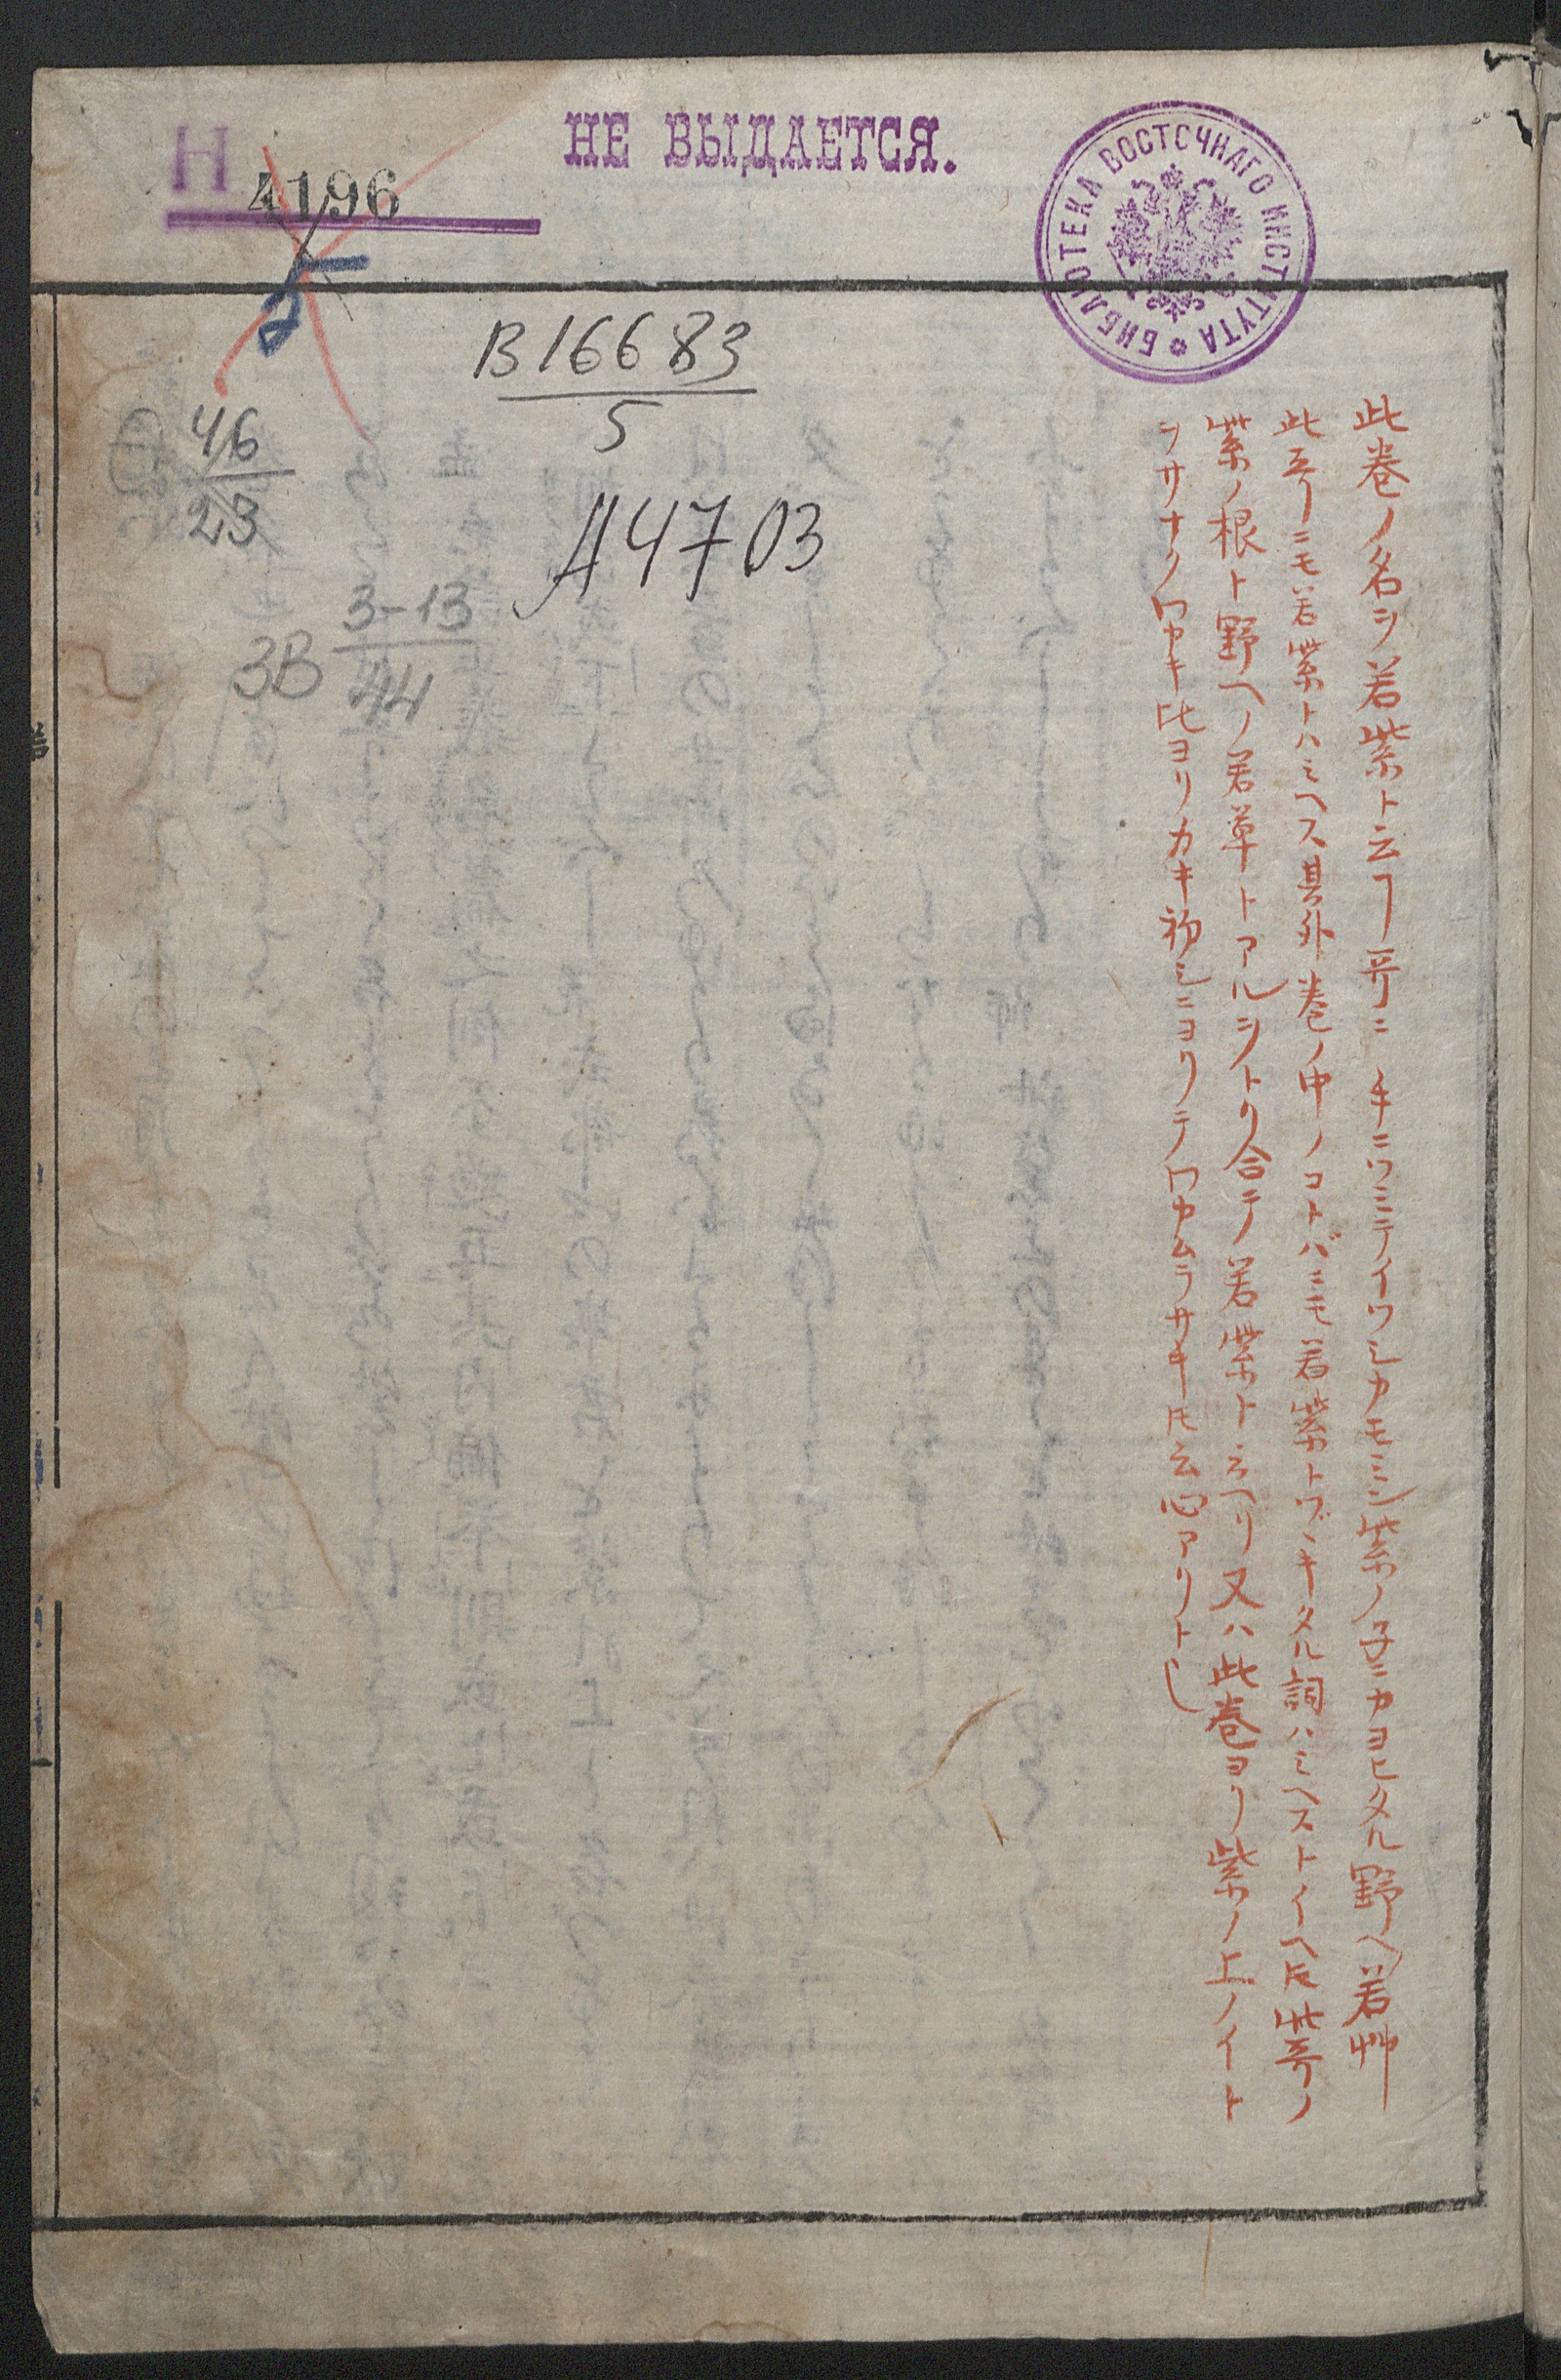 НЕ ВЫДАЕТСЯ.
Н 4196
2
БИБЛІОТЕКА ВОСТОЧНАГО ИНСТИТУТА
В 16683
5
46
23
А 4703
3-13
3В 44
此巻ノ名ヲ若紫ト云ヿ哥ニ手ニツミテイツシカモミン紫ノ子ニカヨヒタル野ヘ若艸
此哥ニモ若紫トハミヘス其外巻ノ中ノコトバニモ若紫トツヾキタル詞ハミヘストイヘ𪜈此哥ノ
紫ノ根ト野ヘノ若草トアルヲトリ合テ若紫ト云ヘリ又ハ此巻ヨリ紫ノ上ノイト
ヲサナクワカキ比ヨリカキ初シニヨリテワカムラサキ𪜈云心アリトし